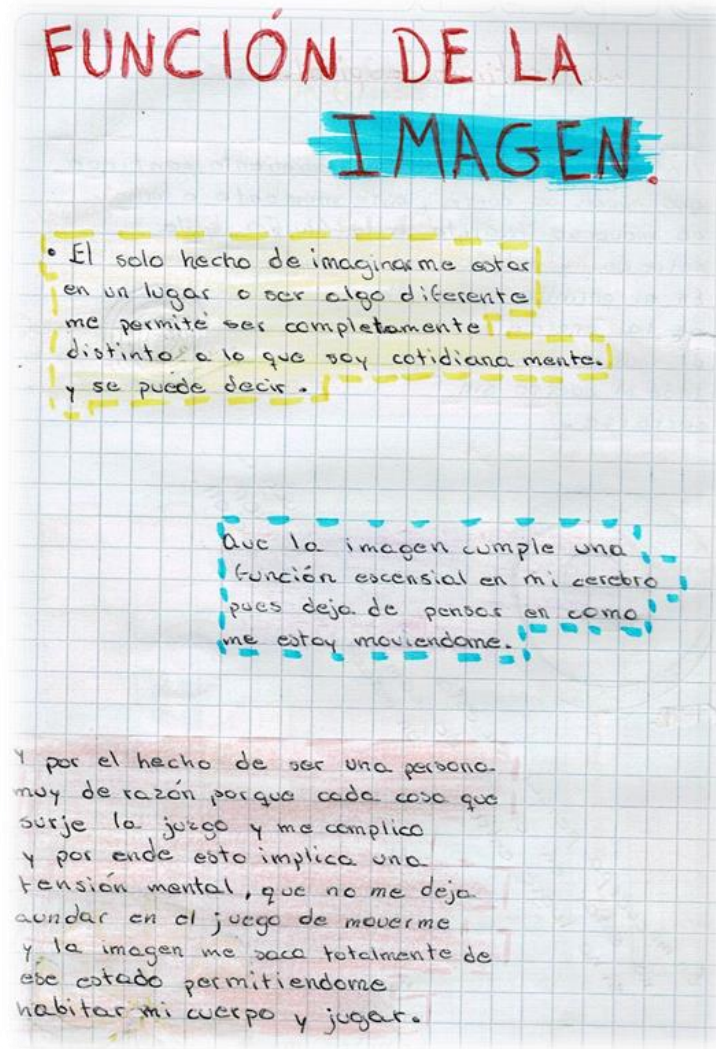 FUNCIÓN DE LA
IMAGEN.
• El solo hecho de imaginarme estar
en un lugar o ser algo diferente
me permite ser completamente
distinto a lo que soy cotidiana mente.
y se puede decir.
Que la imagen cumple una
función escensial en mi cerebro
pues deja de pensar en como
me estoy moviendome.
Y por el hecho de ser una persona
muy de razón porque cada cosa que
surje la juzgo y me complico
y por ende esto implica una
tensión mental, que no me deja
aundar en el juego de moverme
y la imagen me saca totalmente de
ese estado permitiendome
habitar mi cuerpo y jugar.